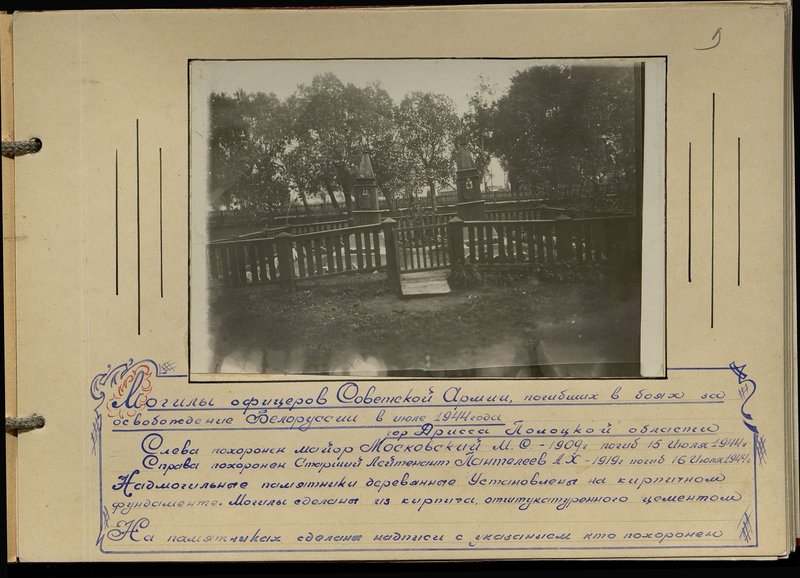 Могилы офицеров Советской Армии, погибших в боях за
освобождение Белоруссии в июле 1944 года
гор Дрисса Полоцкой области
Слева похоронен майор Московский М.О. - 1909г погиб 15 Июля 1944г
Справа похоронен Старший Лейтенант Пантелеев А.Х - 1919г погиб 16 Июля 1944г
Надмогильные памятники деревянные. Установлены на кирпичном
фундаменте. Могилы сделаны из кирпича, отштукатуренного цементом
На памятниках сделаны надписи с указанием кто похоронен